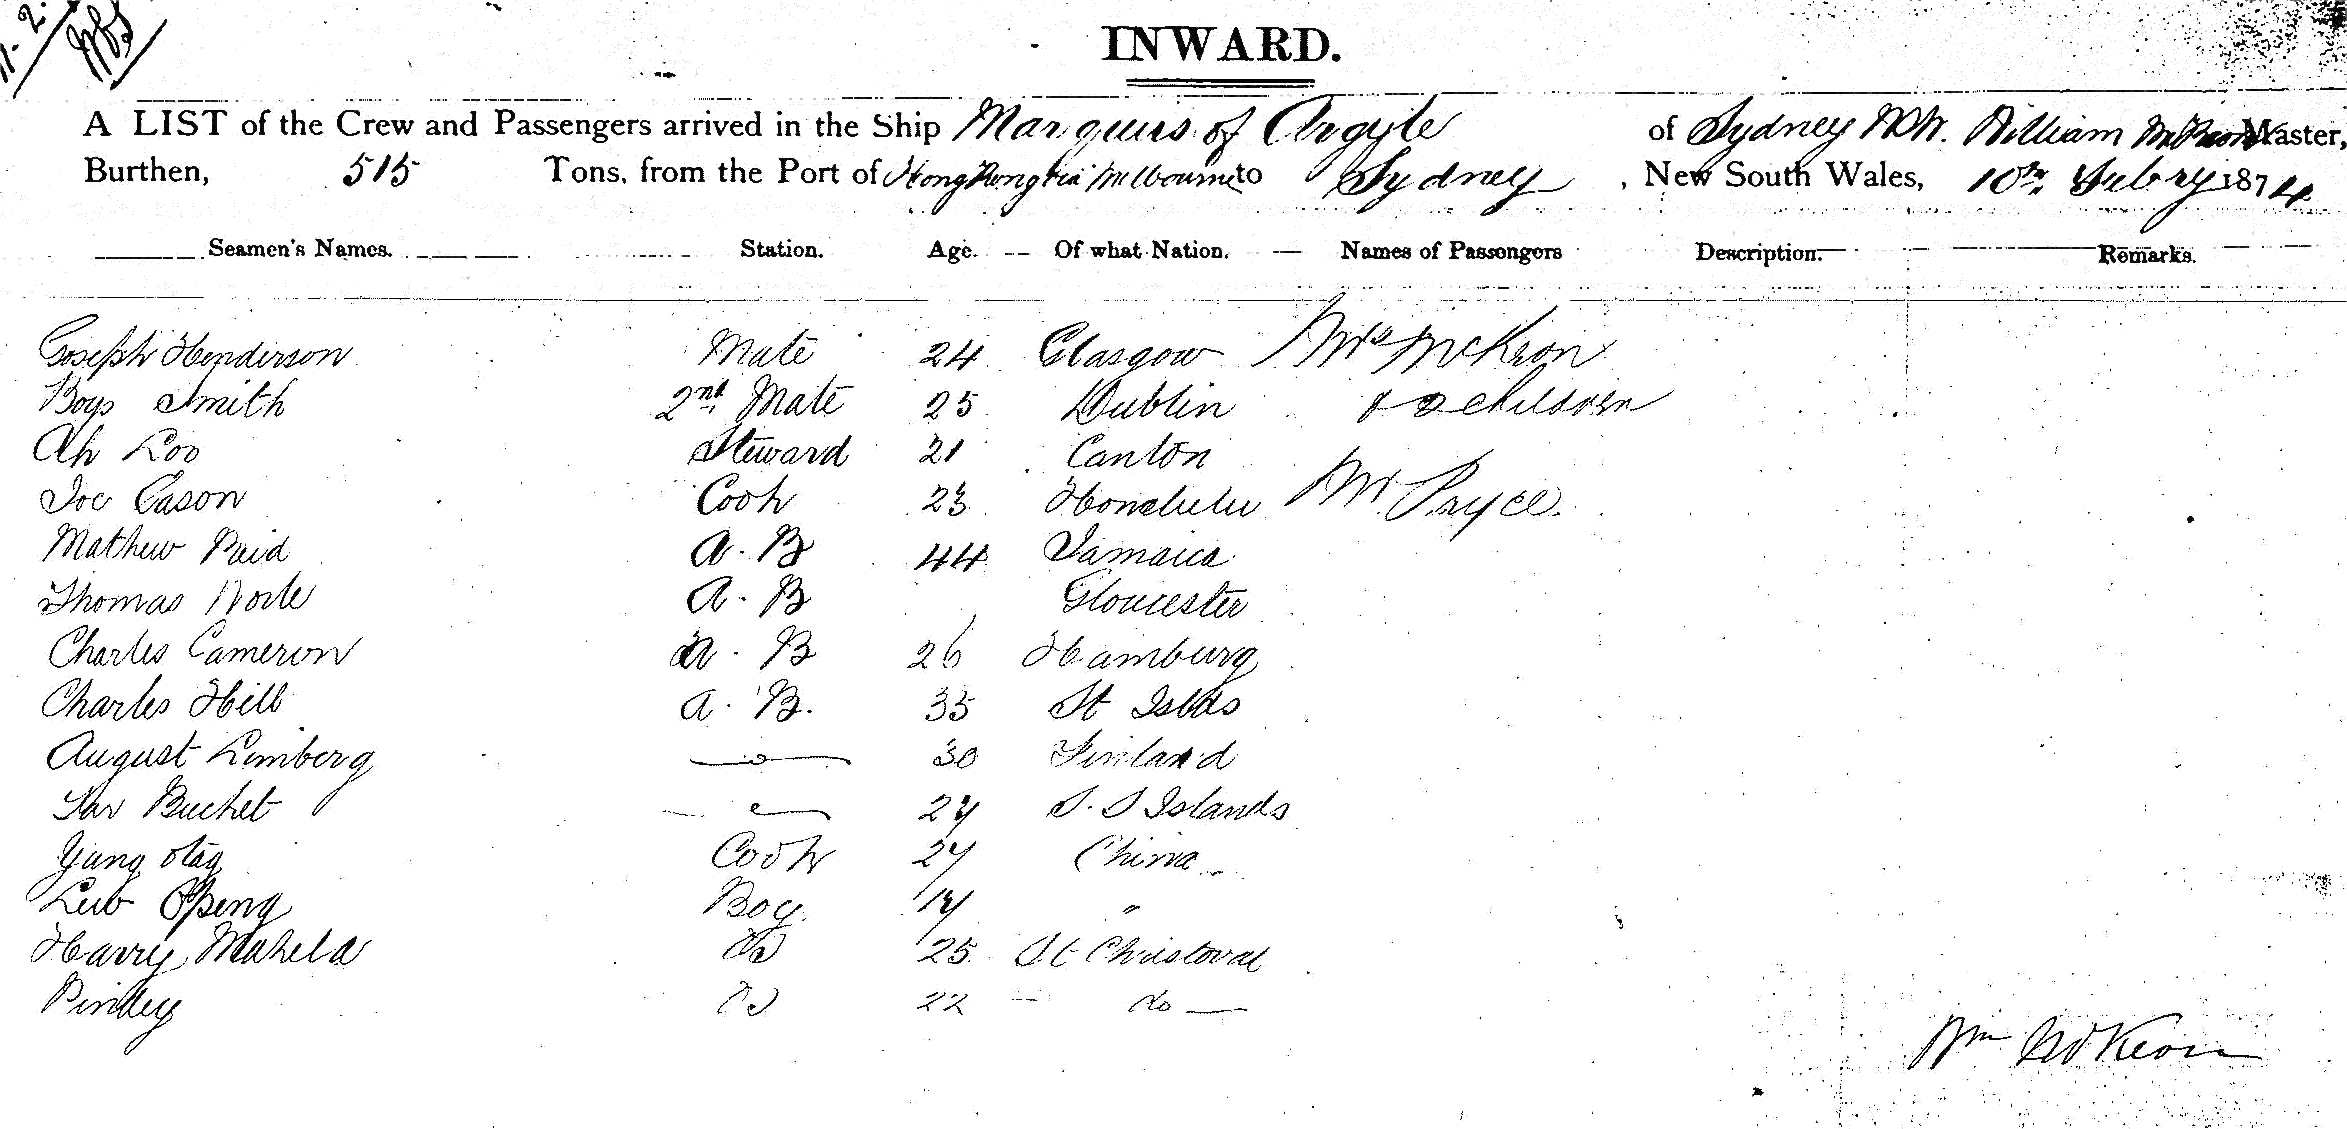 11. 2.
INWARD.
A LIST of the Crew and Passengers arrived in the Ship Marquis of Argyle of Sydney NSW. William Master,
Burthen, 515 Tons, from the Port of Hong Kong via Melbourne to Sydney, New South Wales, 10th Febry 1874
Seamen's Names. Station. Age. Of what Nation. Names of Passengers Description. Remarks.
Joseph Henderson Mate 24 Glasgow Mrs McKeon
Boys Smith 2nd Mate 25 Dublin children
Ah Loo Steward 21 Canton
Joe Cason Cook 23 Honolulu Mr Pryce.
Mathew Reid A. B 44 Jamaica
Thomas A. B Gloucester
Charles Cameron A. B 26 Hamburg
Charles Hill A. B. 35 St
August Lemberg 30 Finland
Buchet 27 S. S Islands
Yang Cook 27 China
Boy 17 "
Harry Mahela 25 St Christoval
22 do
Wm McKeon